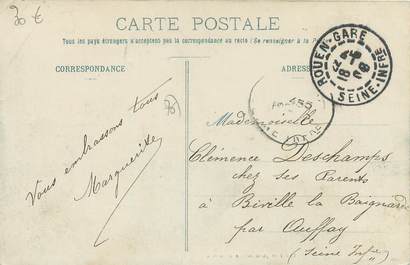 30 €
CARTE POSTALE
Tous les pays étrangers n'acceptent pas la correspondance au recto (Se renseigner à la Poste)
CORRESPONDANCE
ADRESSE
ROUEN-GARE
18
08
SEINE-INFRE
Vous embrassons tous
Marguerite
Mademoiselle
Clémence Deschamps
chez ses Parents
à Biville la Baignarde
par Auffay
(Seine Infre)